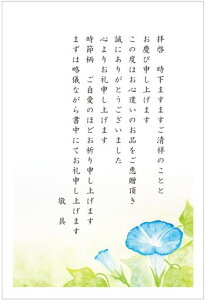 拝啓　時下ますますご清祥のことと
お慶び申し上げます
この度はお心遣いのお品をご恵贈頂き
誠にありがとうございました
心よりお礼申し上げます
時節柄　ご自愛のほどお祈り申し上げます
まずは略儀ながら書中にてお礼申し上げます
敬　具